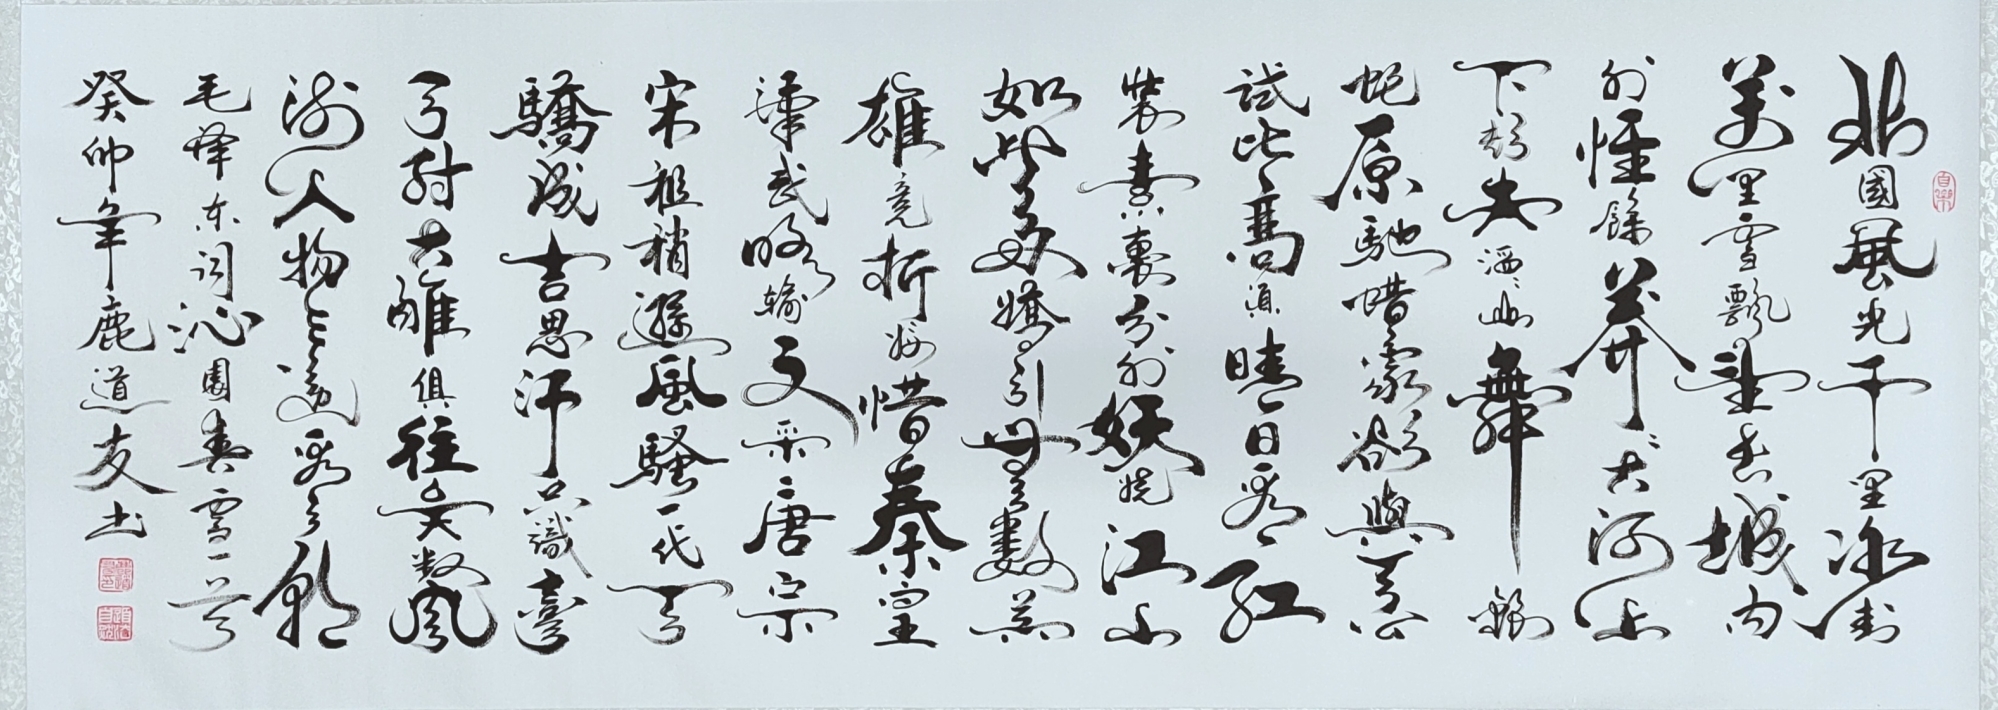 北國風光千里冰封
萬里雪飄望長城內
外惟餘莽莽大河上
下頓失滔滔山舞銀
蛇原馳蠟象欲與天公
試比高須晴日看紅
裝素裹分外妖嬈江山
如此多嬌引無數英
雄競折腰惜秦皇
漢武略輸文采唐宗
宋祖稍遜風騷一代天
驕成吉思汗只識彎
弓射大雕俱往矣數風
流人物還看今朝
毛澤东词沁園春雪一首
癸卯年鹿道友书